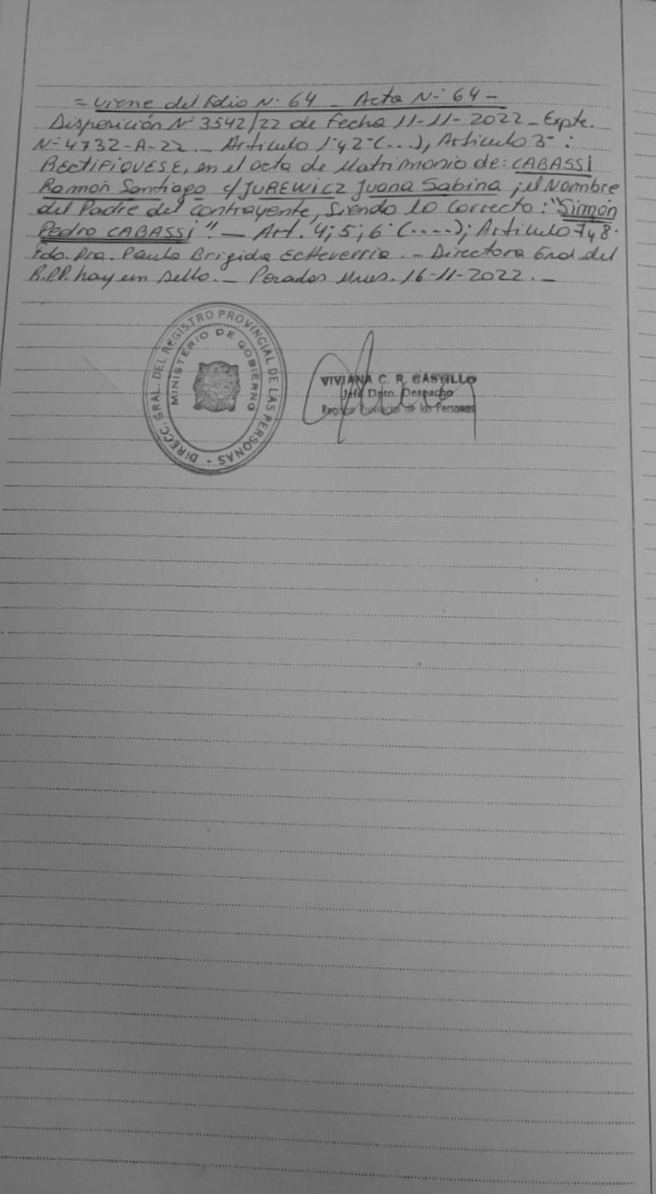 = Viene del Folio N° 64 - Acta N° 64 -
Disposición N° 3542/22 de Fecha 11-11-2022 - Expte.
N° 4732-A-22 - Articulo 1° y 2° (...), Articulo 3° :
RECTIFIQUESE, en el acta de Matrimonio de: CABASSI
Ramón Santiago c/ JUREWICZ Juana Sabina ; el Nombre
del Padre del contrayente, siendo lo correcto: "Simón
Pedro CABASSI". - Art. 4; 5; 6 (....); Articulo 7 y 8.
Fdo. Dra. Paula Brigida Echeverria. - Directora Gral del
R.P.P. hay un sello. - Posadas Mnes. 16-11-2022. -
DIRECC. GRAL. DEL REGISTRO PROVINCIAL DE LAS PERSONAS -
MINISTERIO DE GOBIERNO
VIVIANA C. R. CASTILLO
Jefa Dpto. Despacho
Registro Provincial de las Personas